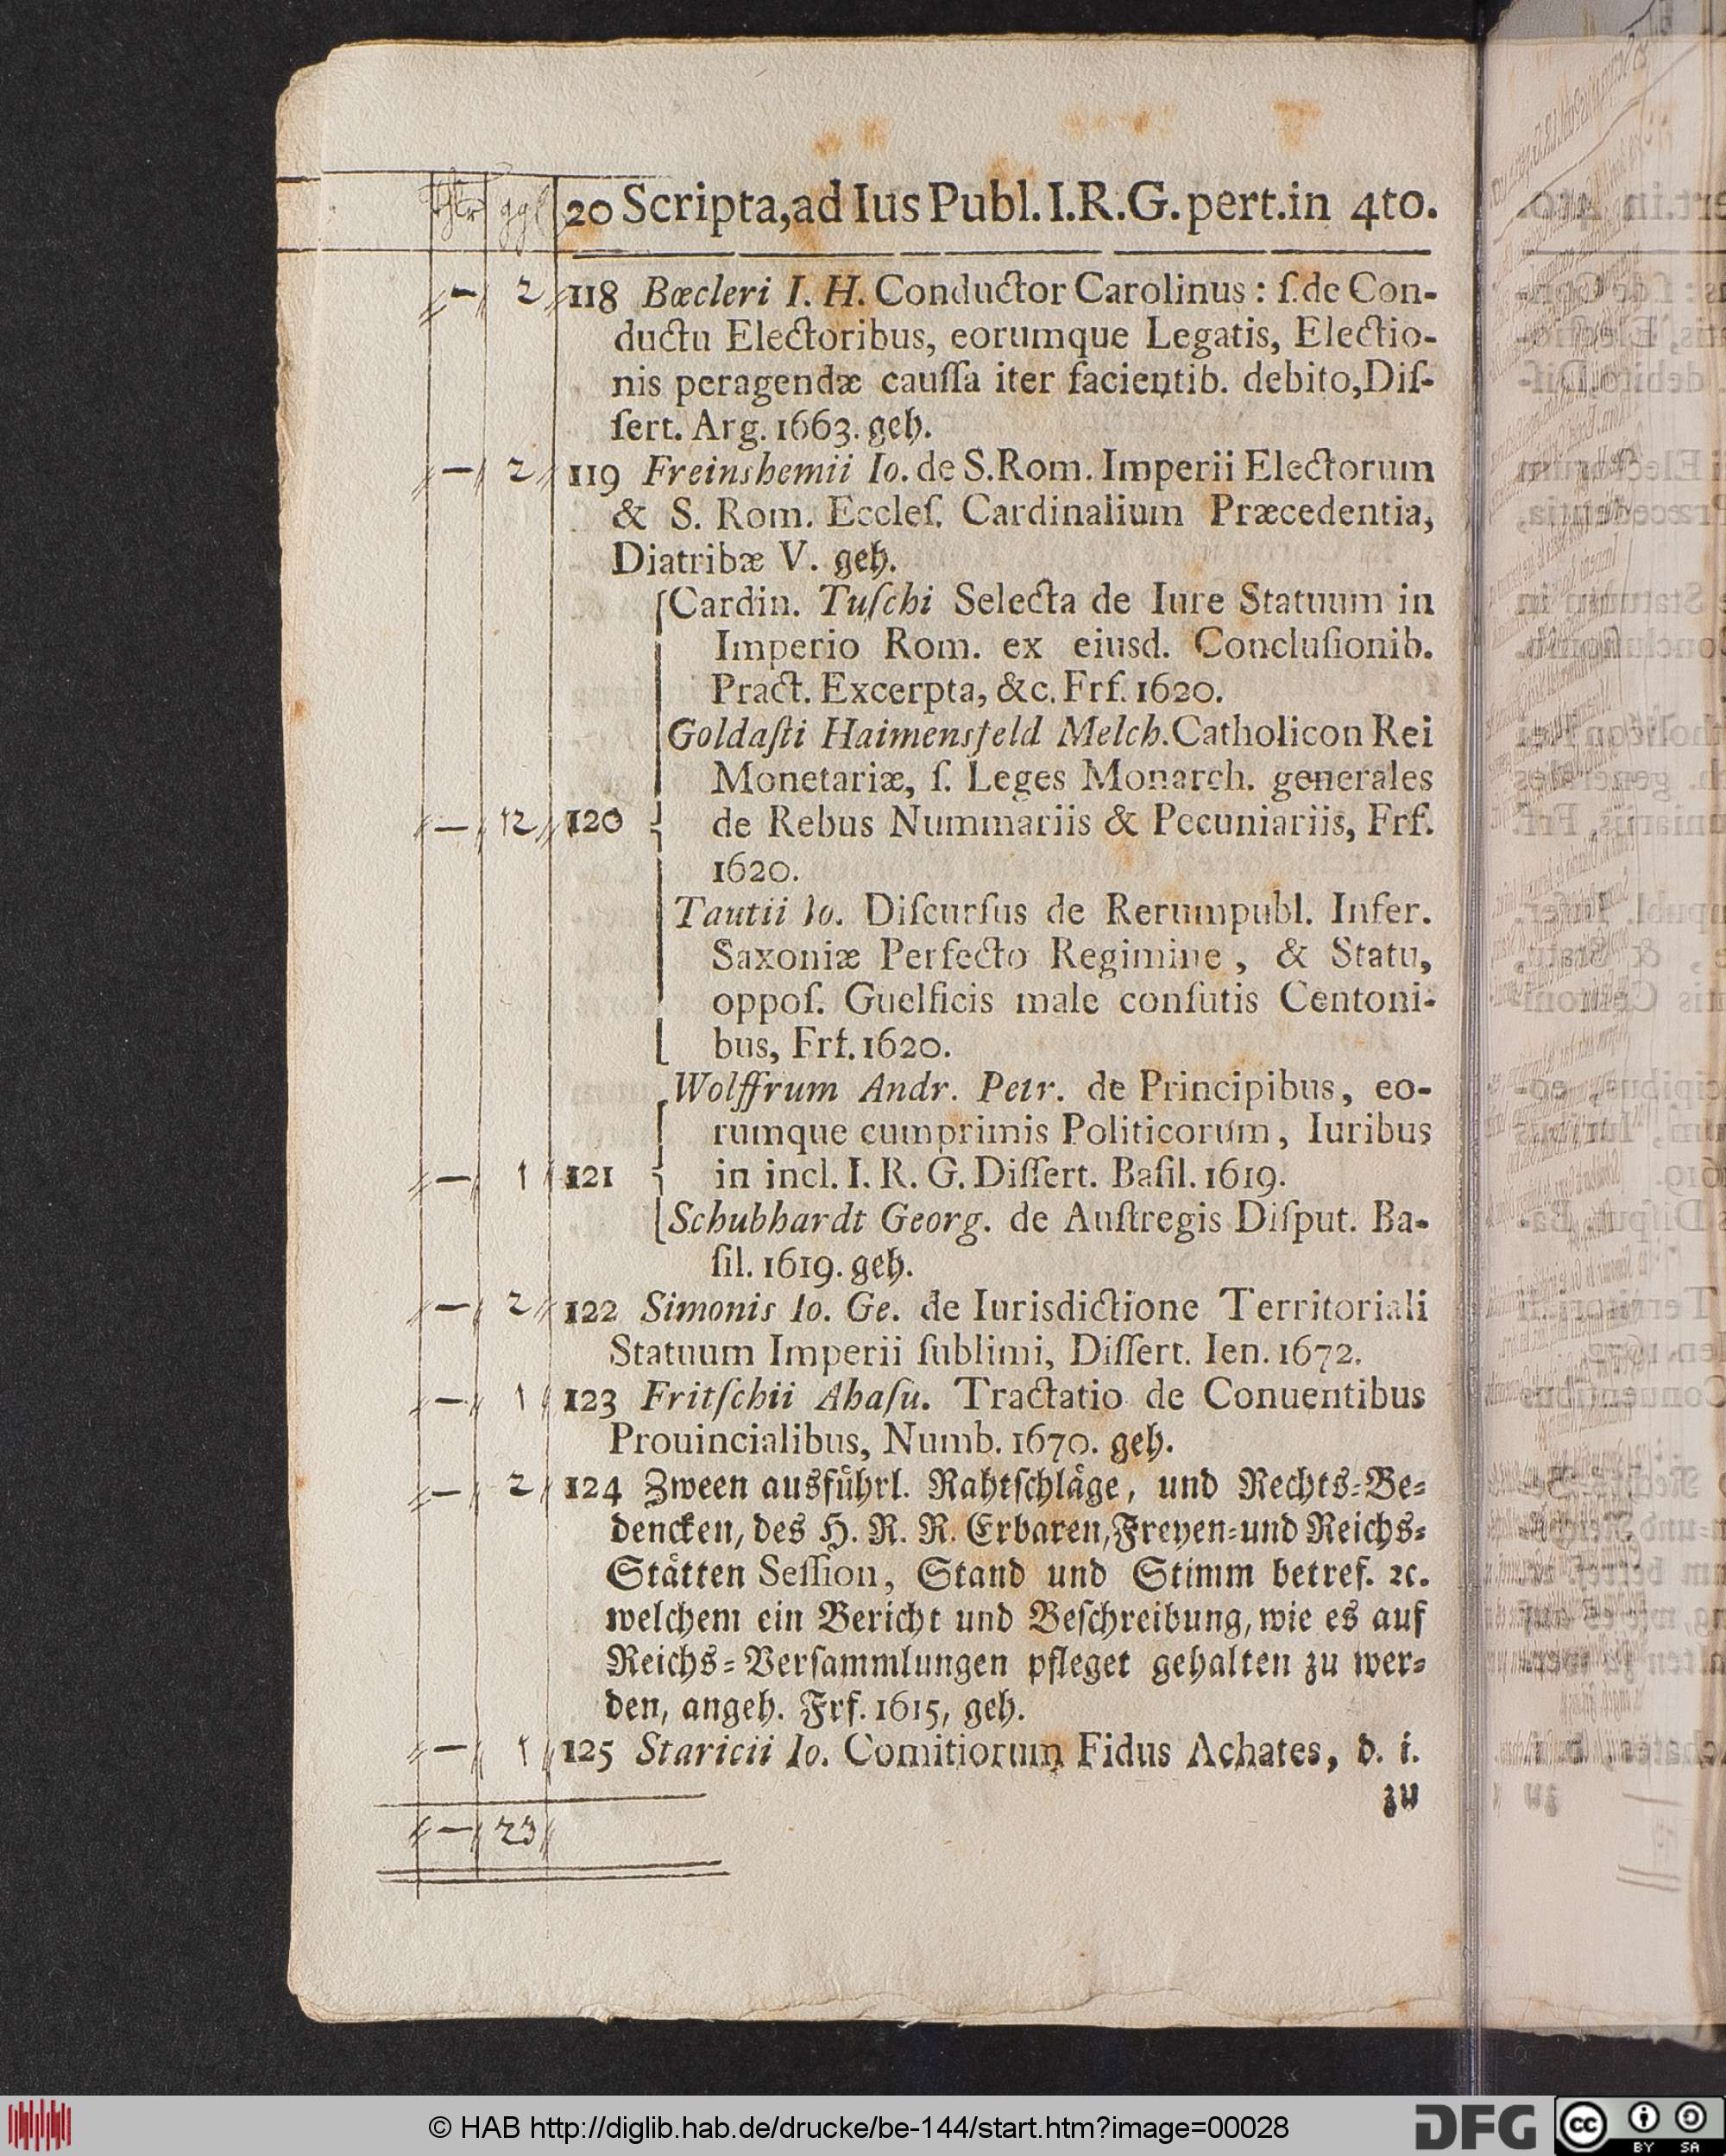 thlr ggl 20 Scripta,ad Ius Publ. I.R.G. pert.in 4to.
— 2 118 Bœcleri I. H. Conductor Carolinus: ſ. de Con-
ductu Electoribus, eorumque Legatis, Electio-
nis peragendæ cauſſa iter facientib. debito, Diſ-
ſert. Arg. 1663. geh.
— 2 119 Freinshemii Io. de S. Rom. Imperii Electorum
& S. Rom. Eccleſ. Cardinalium Præcedentia,
Diatribæ V. geh.
Cardin. Tuſchi Selecta de Iure Statuum in
Imperio Rom. ex eiusd. Concluſionib.
Pract. Excerpta, &c. Frf. 1620.
Goldaſti Haimensfeld Melch. Catholicon Rei
Monetariæ, ſ. Leges Monarch. generales
— 12 120 de Rebus Nummariis & Pecuniariis, Frf.
1620.
Tautii Io. Diſcurſus de Rerumpubl. Infer.
Saxoniæ Perfecto Regimine, & Statu,
oppoſ. Guelficis male conſutis Centoni-
bus, Frf. 1620.
Wolffrum Andr. Petr. de Principibus, eo-
rumque cumprimis Politicorum, Iuribus
— 1 121 in incl. I. R. G. Diſſert. Baſil. 1619.
Schubhardt Georg. de Auſtregis Diſput. Ba-
ſil. 1619. geh.
— 2 122 Simonis Io. Ge. de Iurisdictione Territoriali
Statuum Imperii ſublimi, Diſſert. Ien. 1672.
— 1 123 Fritſchii Ahaſu. Tractatio de Conuentibus
Prouincialibus, Numb. 1670. geh.
— 2 124 Zween ausführl. Rahtſchläge, und Rechts-Be-
dencken, des H. R. R. Erbaren, Freyen- und Reichs-
Stätten Seſſion, Stand und Stimm betref. ꝛc.
welchem ein Bericht und Beſchreibung, wie es auf
Reichs-Verſammlungen pfleget gehalten zu wer-
den, angeh. Frf. 1615, geh.
— 1 125 Staricii Io. Comitiorum Fidus Achates, d. i.
zu
— 23
© HAB http://diglib.hab.de/drucke/be-144/start.htm?image=00028
DFG
cc BY SA